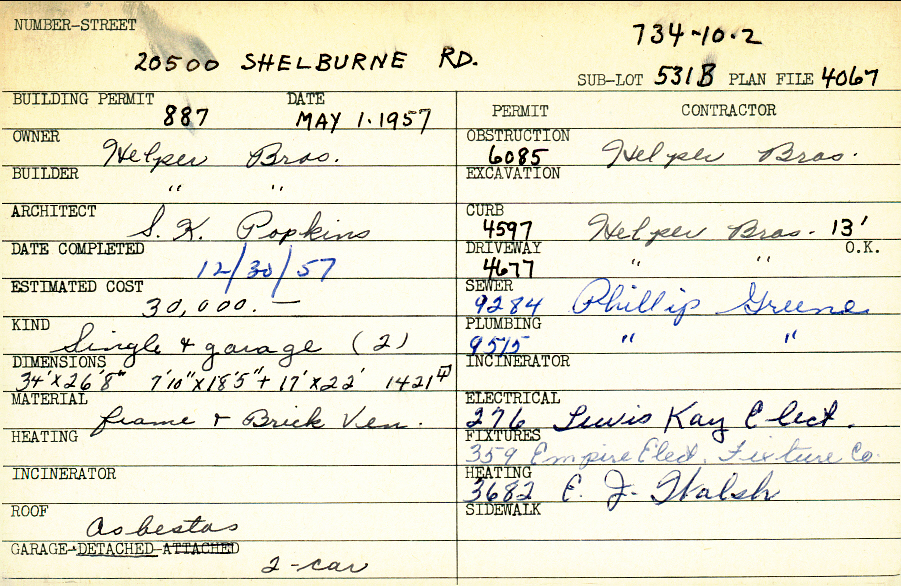 NUMBER-STREET
734-10-2
20500 SHELBURNE RD.
SUB-LOT 531B PLAN FILE 4067
BUILDING PERMIT 887 DATE MAY 1. 1957
OWNER Helper Bros.
BUILDER " "
ARCHITECT S. K. Popkins
DATE COMPLETED 12/30/57
ESTIMATED COST 30,000.—
KIND Single & garage (2)
DIMENSIONS 34'x26'8" 7'10"x18'5"+17'x22' 1421
MATERIAL frame & Brick Ven.
HEATING
INCINERATOR
ROOF asbestos
GARAGE-DETACHED-ATTACHED 2-car
PERMIT CONTRACTOR
OBSTRUCTION 6085 Helper Bros.
EXCAVATION
CURB 4597 Helper Bros. 13'
DRIVEWAY 4677 " " O.K.
SEWER 9284 Phillip Greene
PLUMBING 9515 " "
INCINERATOR
ELECTRICAL 276 Lewis Kay Elect.
FIXTURES 359 Empire Elect. Fixture Co.
HEATING 3682 E. J. Walsh
SIDEWALK